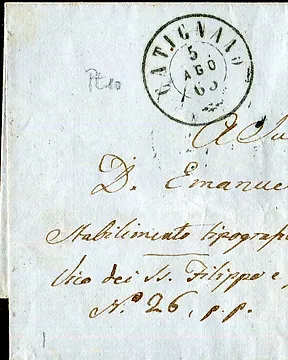 CATIGNANO
5
AGO
63
A Su
D. Emanue
Stabilimento tipografi
Vico dei SS. Filippo e
N.° 26, p.p.